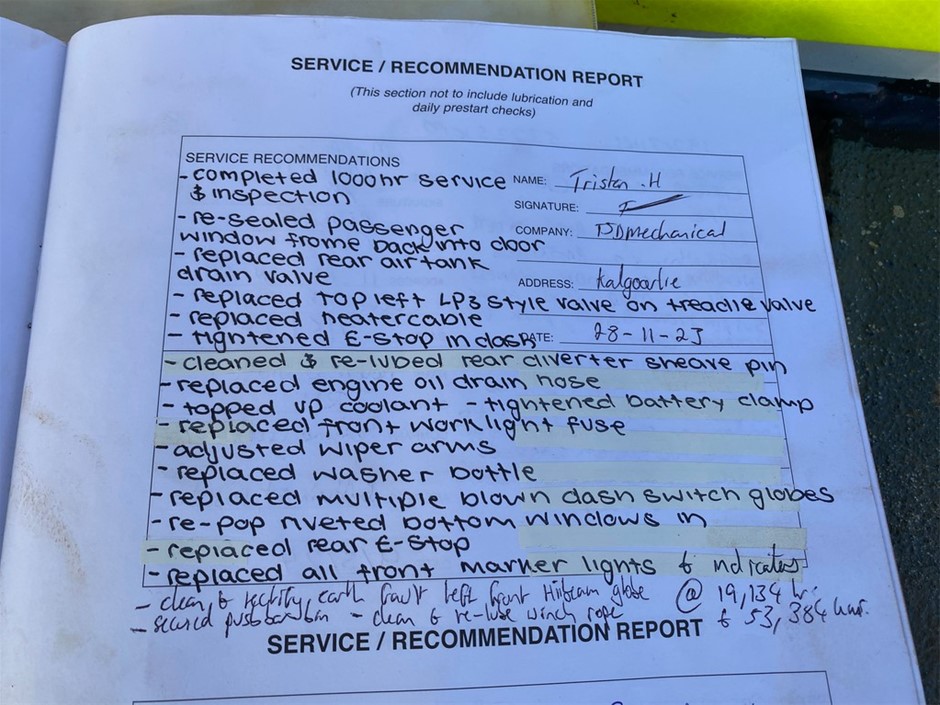 SERVICE / RECOMMENDATION REPORT
(This section not to include lubrication and
daily prestart checks)
SERVICE RECOMMENDATIONS
- completed 1000hr service
& inspection
- re-sealed passenger
window frame back into door
- replaced rear air tank
drain valve
- replaced top left LP3 style valve on treadle valve
- replaced heater cable
- tightened E-Stop in dash
NAME: Tristan .H
SIGNATURE:
COMPANY: PDMechanical
ADDRESS: Kalgoorlie
DATE: 28-11-23
- cleaned & re-lubed rear diverter sheave pin
- replaced engine oil drain hose
- topped up coolant - tightened battery clamp
- replaced front worklight fuse
- adjusted wiper arms
- replaced washer bottle
- replaced multiple blown dash switch globes
- re-pop riveted bottom windows in
- replaced rear E-Stop
- replaced all front marker lights & indicators
- clean & rectify earth fault left front Hi beam globe @ 19,134 hr.
- secured - clean & re-lube winch rope & 53,384
SERVICE / RECOMMENDATION REPORT